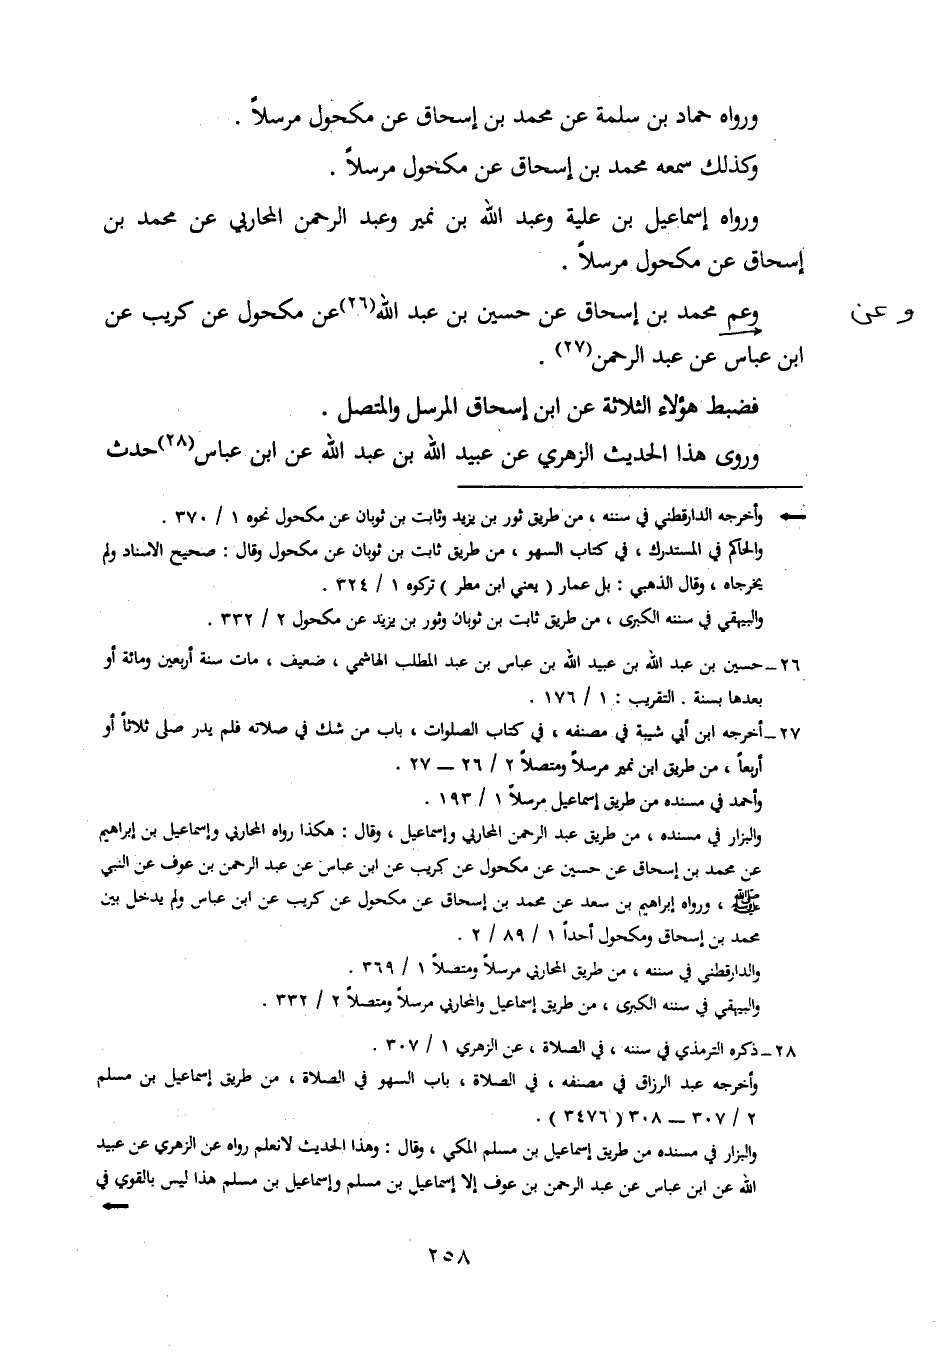 ورواه حماد بن سلمة عن محمد بن إسحاق عن مكحول مرسلاً .
وكذلك سمعه محمد بن إسحاق عن مكحول مرسلاً .
ورواه إسماعيل بن علية وعبد الله بن نمير وعبد الرحمن المحاربي عن محمد بن
إسحاق عن مكحول مرسلاً .
وعم محمد بن إسحاق عن حسين بن عبد الله(٢٦)عن مكحول عن كريب عن
وعن
ابن عباس عن عبد الرحمن(٢٧) .
فضبط هؤلاء الثلاثة عن ابن إسحاق المرسل والمتصل .
وروى هذا الحديث الزهري عن عبيد الله بن عبد الله عن ابن عباس(٢٨)حدث
وأخرجه الدارقطني في سننه ، من طريق ثور بن يزيد وثابت بن ثوبان عن مكحول نحوه ١ / ٣٧٠ .
والحاكم في المستدرك ، في كتاب السهو ، من طريق ثابت بن ثوبان عن مكحول وقال : صحيح الاسناد ولم
يخرجاه ، وقال الذهبي : بل عمار ( يعني ابن مطر ) تركوه ١ / ٣٢٤ .
والبيهقي في سننه الكبرى ، من طريق ثابت بن ثوبان وثور بن يزيد عن مكحول ٢ / ٣٣٢ .
٢٦ـ حسين بن عبد الله بن عبيد الله بن عباس بن عبد المطلب الهاشمي ، ضعيف ، مات سنة أربعين ومائة أو
بعدها بسنة . التقريب : ١ / ١٧٦ .
٢٧ـ أخرجه ابن أبي شيبة في مصنفه ، في كتاب الصلوات ، باب من شك في صلاته فلم يدر صلى ثلاثاً أو
أربعاً ، من طريق ابن نمير مرسلاً ومتصلاً ٢ / ٢٦ ـ ٢٧ .
وأحمد في مسنده من طريق إسماعيل مرسلاً ١ / ١٩٣ .
والبزار في مسنده ، من طريق عبد الرحمن المحاربي وإسماعيل ، وقال : هكذا رواه المحاربي وإسماعيل بن إبراهيم
عن محمد بن إسحاق عن حسين عن مكحول عن كريب عن ابن عباس عن عبد الرحمن بن عوف عن النبي
ﷺ ، ورواه إبراهيم بن سعد عن محمد بن إسحاق عن مكحول عن كريب عن ابن عباس ولم يدخل بين
محمد بن إسحاق ومكحول أحداً ١ / ٨٩ / ٢ .
والدارقطني في سننه ، من طريق المحاربي مرسلاً ومتصلاً ١ / ٣٦٩ .
والبيهقي في سننه الكبرى ، من طريق إسماعيل والمحاربي مرسلاً ومتصلاً ٢ / ٣٣٢ .
٢٨ـ ذكره الترمذي في سننه ، في الصلاة ، عن الزهري ١ / ٣٠٧ .
وأخرجه عبد الرزاق في مصنفه ، في الصلاة ، باب السهو في الصلاة ، من طريق إسماعيل بن مسلم
٢ / ٣٠٧ ـ ٣٠٨ ( ٣٤٧٦ ) .
والبزار في مسنده من طريق إسماعيل بن مسلم المكي ، وقال : وهذا الحديث لانعلم رواه عن الزهري عن عبيد
الله عن ابن عباس عن عبد الرحمن بن عوف إلا إسماعيل بن مسلم وإسماعيل بن مسلم هذا ليس بالقوي في
٢٥٨